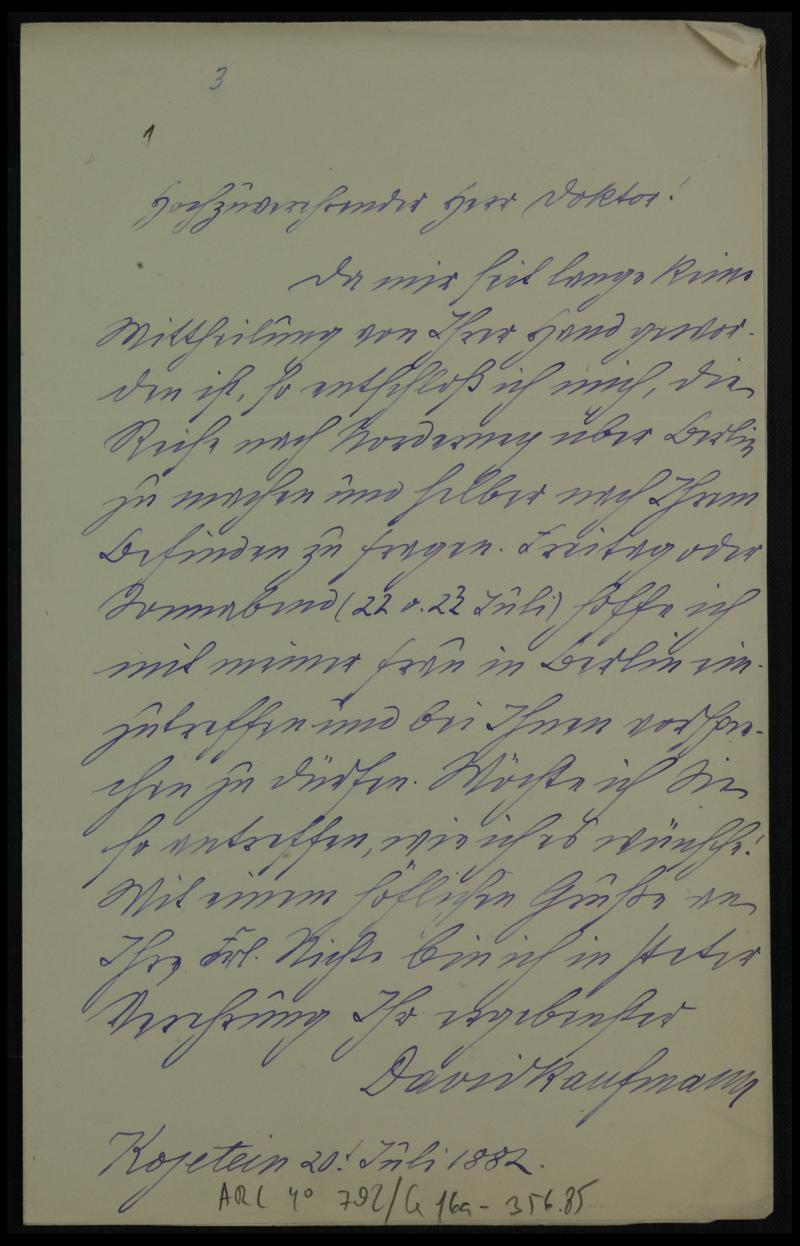 3
1
Hochzuverehrender Herr Doktor!
Da mir seit lange keine
Mittheilung von Ihrer Hand gewor-
den ist, so entschloß ich mich, die
Reise nach Norderney über Berlin
zu machen und selber nach Ihrem
Befinden zu fragen. Freitag oder
Sonnabend (22 o. 23 Juli) hoffe ich
mit meiner Frau in Berlin ein-
zutreffen und bei Ihnen vorspre-
chen zu dürfen. Möchte ich Sie
so antreffen, wie ich es wünsche!
Mit einem höflichen Gruße an
Ihre Frl. Nichte bin ich in steter
Verehrung Ihr ergebenster
David Kaufmann
Kojetein 20. Juli 1882.
ARC 4° 792/G 16a - 356.85